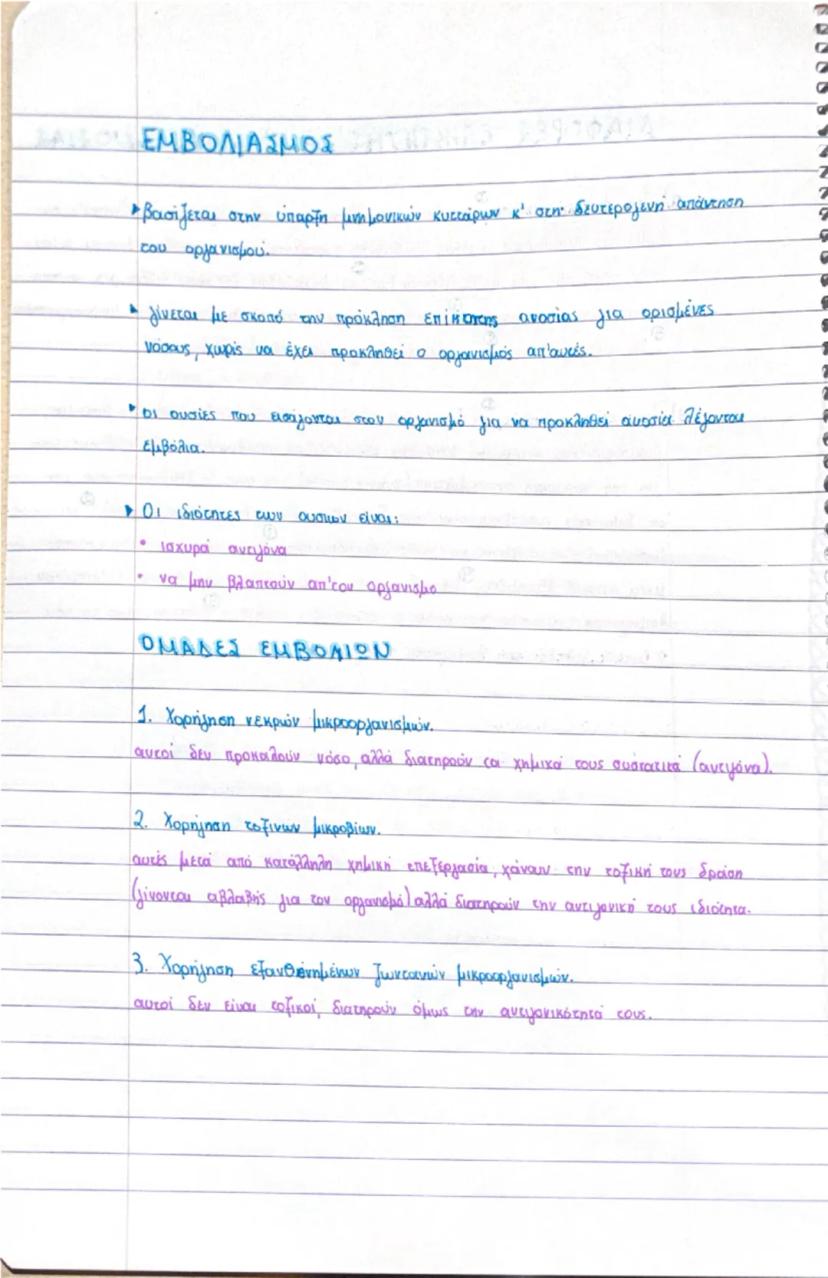 ΕΜΒΟΛΙΑΣΜΟΣ
▸ βασίζεται στην ύπαρξη μνημονικών κυττάρων κ' στη δευτερογενή απάντηση
του οργανισμού.
▸ γίνεται με σκοπό την πρόκληση επίκτητης ανοσίας για ορισμένες
νόσους, χωρίς να έχει προκληθεί ο οργανισμός απ'αυτές.
▸ οι ουσίες που εισάγονται στον οργανισμό για να προκληθεί ανοσία λέγονται
εμβόλια.
▸ Οι ιδιότητες των ουσιων είναι:
• ισχυρά αντιγόνα
• να μην βλαπτούν απ'του οργανισμο
ΟΜΑΔΕΣ ΕΜΒΟΛΙΩΝ
1. Χορήγηση νεκρών μικροοργανισμών.
αυτοί δεν προκαλούν νόσο, αλλά διατηρούν τα χημικά τους συστατικά (αντιγόνα).
2. Χορήγηση τοξινων μικροβίων.
αυτές μετά από κατάλληλη χημική επεξεργασία, χάνουν την τοξική τους δράση
(γίνονται αβλαβής για τον οργανισμό) αλλά διατηρούν την αντιγονική τους ιδιότητα.
3. Χορήγηση εξανθενημένων ζωντανών μικροοργανισμών.
αυτοί δεν είναι τοξικοί, διατηρούν όμως την αντιγονικότητά τους.